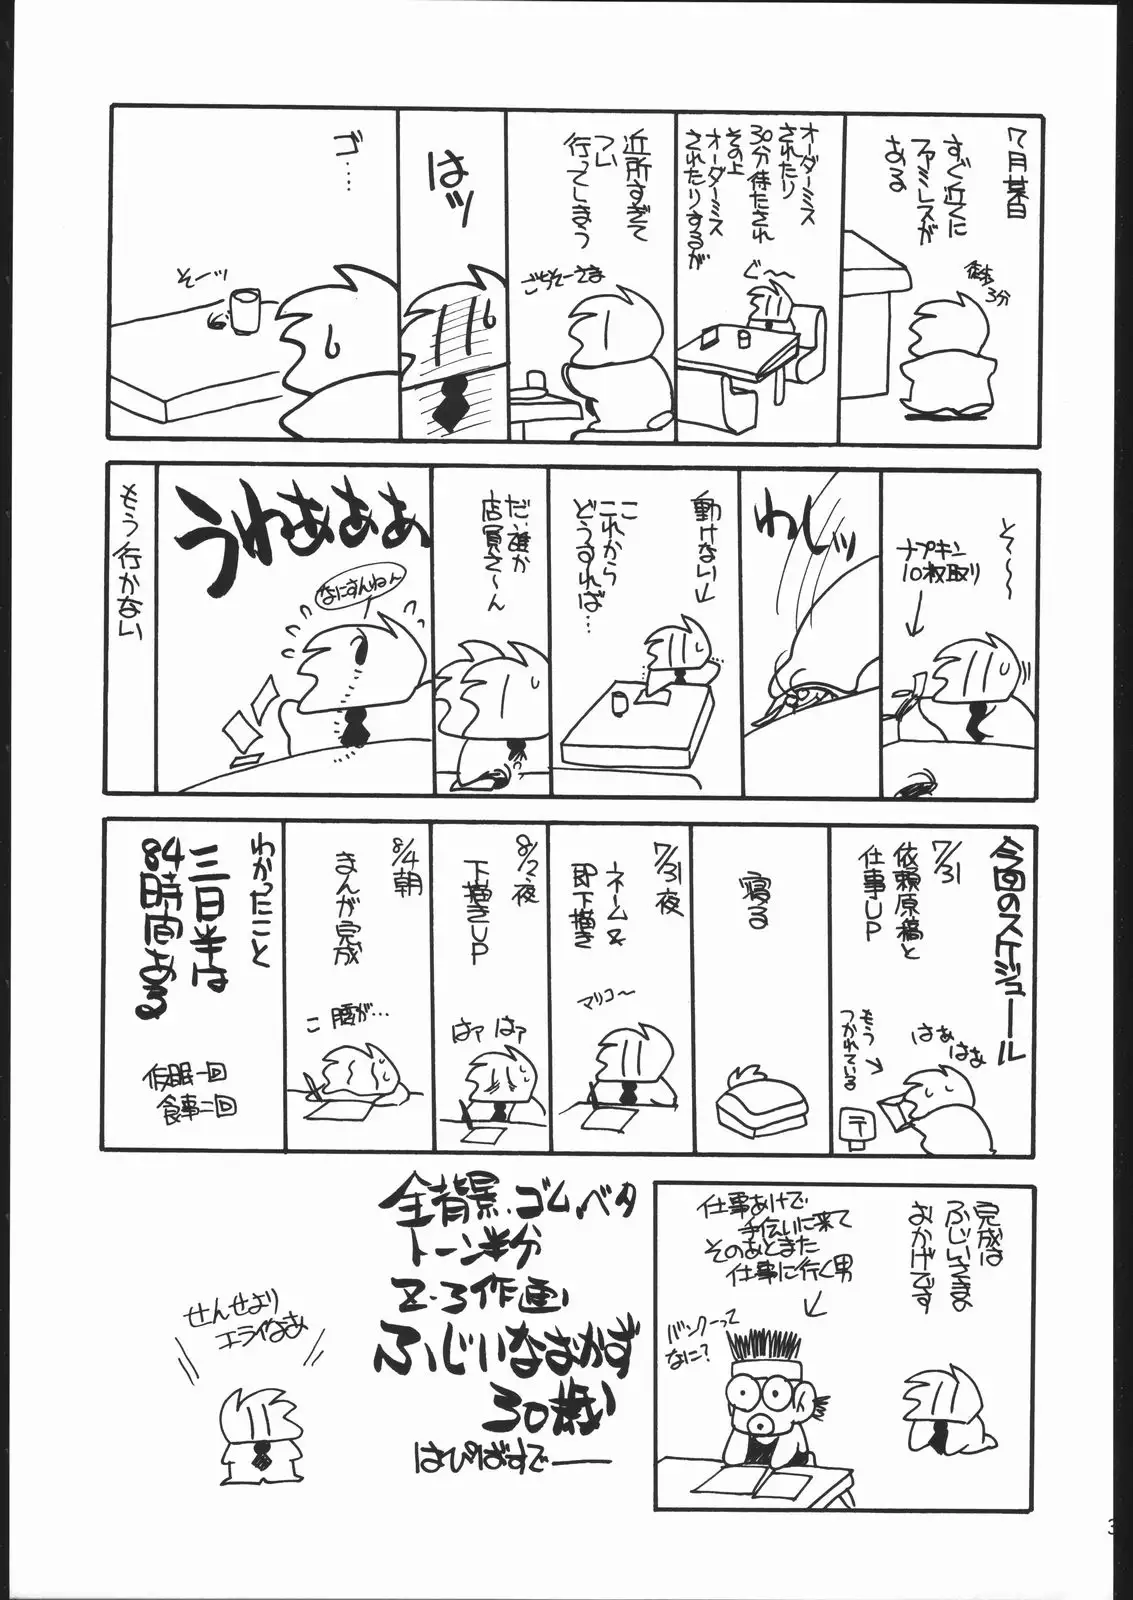 7月某日
すぐ近くに
ファミレスが
ある
徒歩
3分
オーダーミス
されたり
30分待たされ
その上
オーダーミス
されたりするが
ぐ〜
近所すぎて
つい
行ってしまう
ごちそーさま
はッ
ゴ……
そーッ
そ〜〜〜
ナプキン
10枚取り
わしッ
動けない
こ
これから
どうすれば…
だ、誰か
店員さ〜ん
うわぁぁぁ
なにすんねん
もう行かない
今回のスケジュール
7/31
依頼原稿と
仕事UP
もう
つかれている
はぁ
はぁ
寝る
7/31夜
ネーム&
即下描き
マリコ〜
8/2夜
下描きUP
はァ はァ
8/4朝
まんが完成
こ 腰が…
わかったこと
三日半は
84時間ある
仮眠一回
食事二回
完成は
ふじいさまの
おかげです
仕事あけで
手伝いに来て
そのあとまた
仕事に行く男
バンクーって
なに?
全背景、ゴム、ベタ
トーン半分
Z・3作画
ふじいなおかず
30歳
はぴばすでー
せんせより
エライなぁ
3